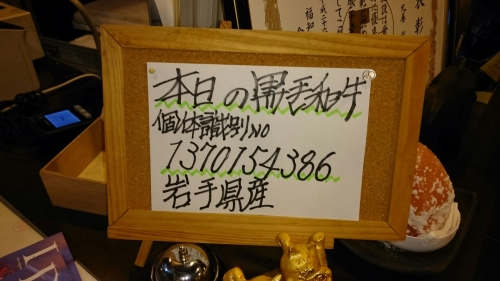 本日の黒毛和牛
個体識別NO
1370154386
岩手県産